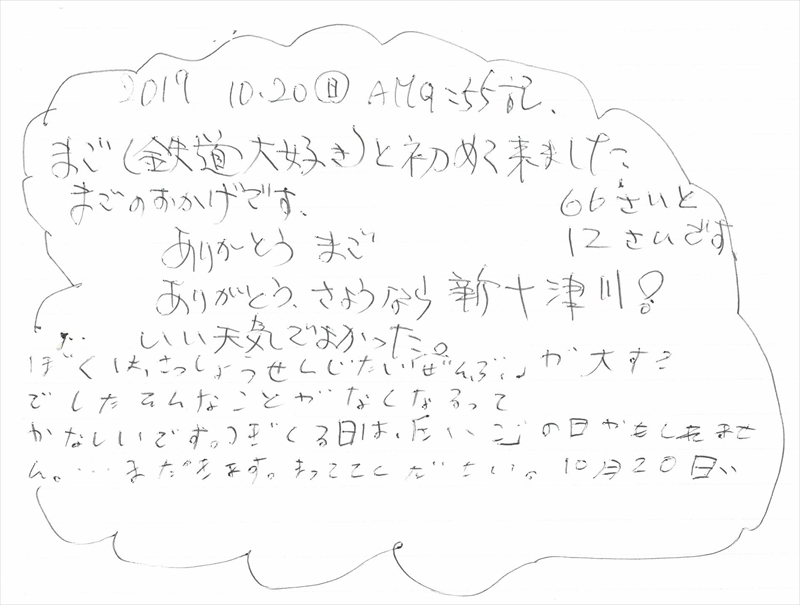 2019 10.20㊐ AM9:55記、
まご(鉄道大好き)と初めて来ました
まごのおかげです、
66さいと
12さいです
ありがとう まご
ありがとう、さようなら 新十津川!
いい天気でよかった。
ぼくは、さっしょうせんじたい「ぜんぶ」が大すき
でしたそんなことがなくなるって
かなしいです。つぎくる日は、さいごの日かもしれませ
ん。…まだきます。まっててください。10月20日